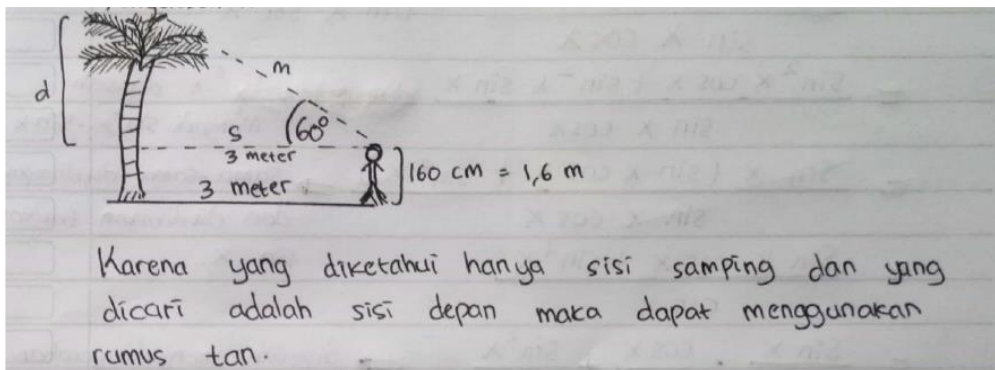 m
d
S
60°
3 meter
3 meter
160 cm = 1,6 m
Karena yang diketahui hanya sisi samping dan yang
dicari adalah sisi depan maka dapat menggunakan
rumus tan.